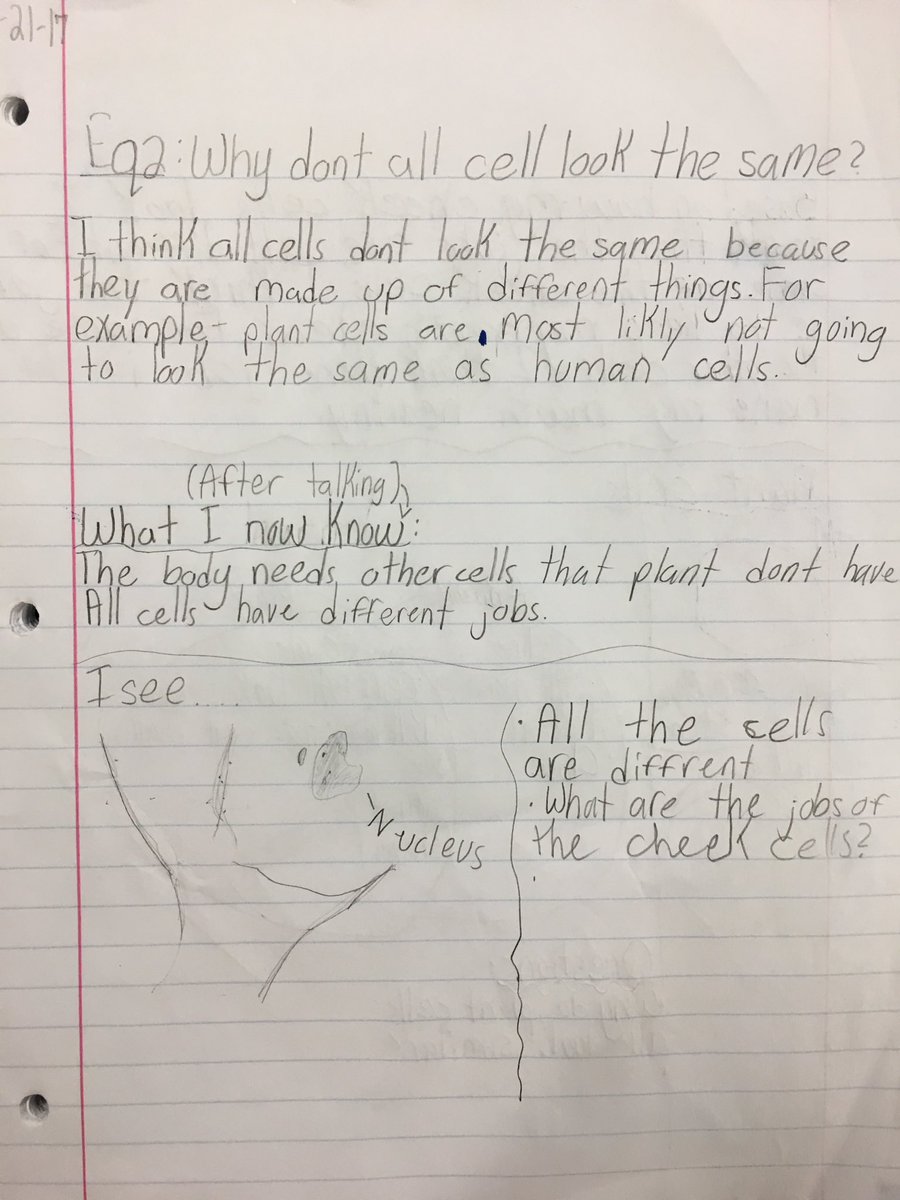 -21-17
Eq2: Why dont all cell look the same?
I think all cells dont look the same because
they are made up of different things. For
example- plant cells are most likly not going
to look the same as human cells.
(After talking)
What I now know:
The body needs other cells that plant dont have
All cells have different jobs.
I see.....
Nucleus
· All the cells
are diffrent
· What are the jobs of
the cheek cells?
·